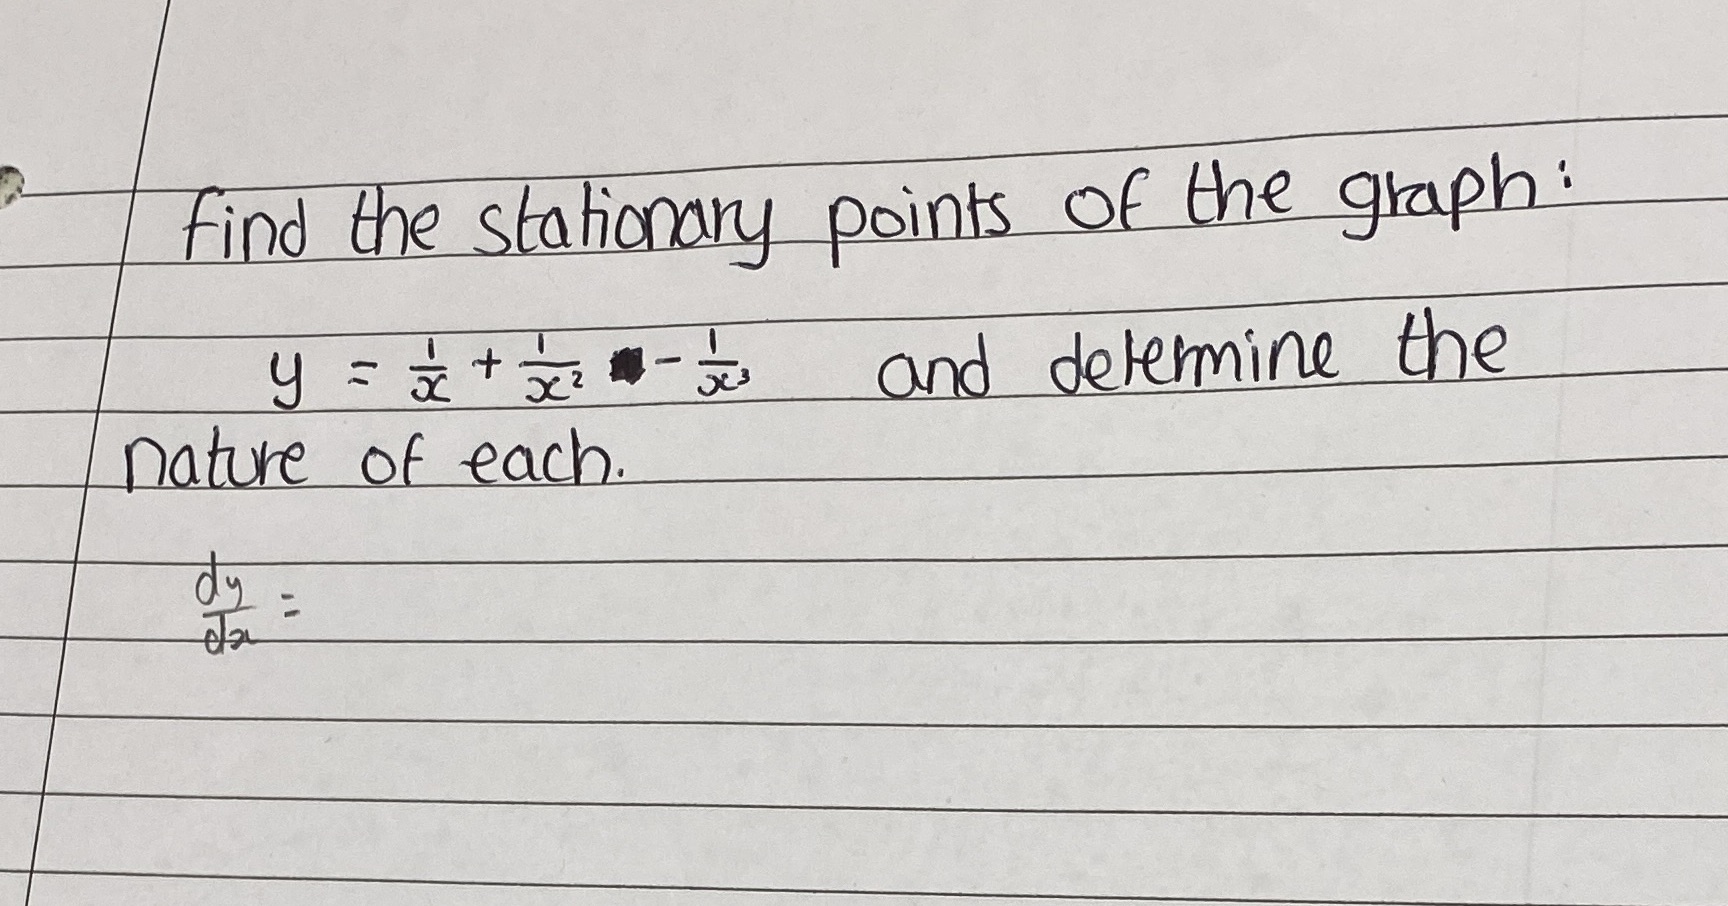 find the stationary points of the graph:
y = 1/x + 1/x² - 1/x³ and determine the
nature of each.
dy/dx =